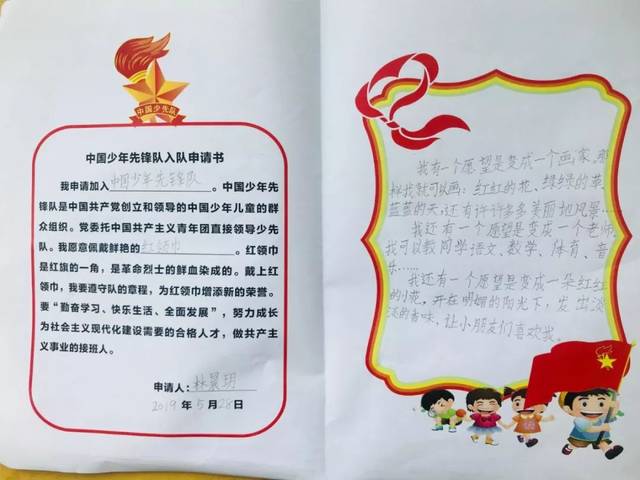 中国少先队
中国少年先锋队入队申请书
我申请加入中国少年先锋队。中国少年先
锋队是中国共产党创立和领导的中国少年儿童的群
众组织。党委托中国共产主义青年团直接领导少先
队。我愿意佩戴鲜艳的红领巾。红领巾
是红旗的一角，是革命烈士的鲜血染成的。戴上红
领巾，我要遵守队的章程，为红领巾增添新的荣誉。
要“勤奋学习、快乐生活、全面发展”，努力成长
为社会主义现代化建设需要的合格人才，做共产主
义事业的接班人。
申请人：林景玥
2019年5月28日
我有一个愿望是变成一个画家，那
样我就可以画：红红的花、绿绿的草、
蓝蓝的天；还有许许多多美丽地风景……
我还有一个愿望是变成一个老师，
我可以教同学语文、数学、体育、音
乐……
我还有一个愿望是变成一朵红红
的小花，开在明媚的阳光下，发出淡
淡的香味，让小朋友们喜欢我。